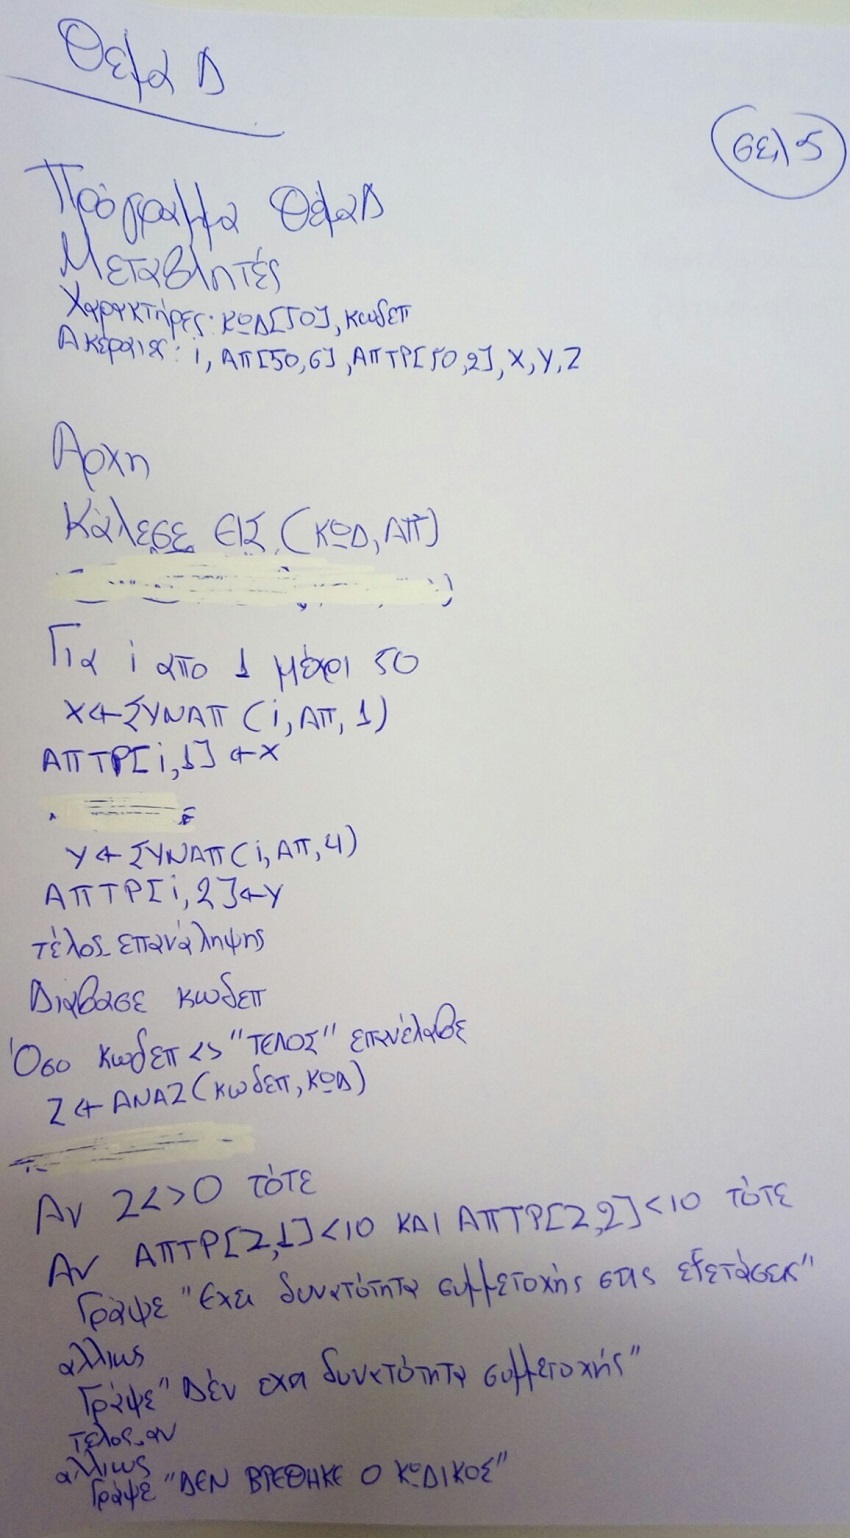 Θέμα Δ
σελ 5
Πρόγραμμα ΘέμαΔ
Μεταβλητές
Χαρακτήρες: ΚΩΔ[50], κωδεπ
Ακέραιες: i, ΑΠ[50,6], ΑΠΤΡ[50,2], Χ, Υ, Ζ
Αρχη
Κάλεσε ΕΙΣ (ΚΩΔ, ΑΠ)
Για i απο 1 μέχρι 50
Χ ← ΣΥΝΑΠ (i, ΑΠ, 1)
ΑΠΤΡ[i,1] ← Χ
Υ ← ΣΥΝΑΠ (i, ΑΠ, 4)
ΑΠΤΡ[i,2] ← Υ
τέλος_επανάληψης
Διάβασε κωδεπ
Όσο κωδεπ <> "ΤΕΛΟΣ" επανέλαβε
Ζ ← ΑΝΑΖ (κωδεπ, ΚΩΔ)
Αν Ζ <> 0 τότε
Αν ΑΠΤΡ[Ζ,1] < 10 ΚΑΙ ΑΠΤΡ[Ζ,2] < 10 τότε
Γράψε "Εχει δυνατότητα συμμετοχής στις εξετάσεις"
αλλιως
Γράψε "Δέν εχει δυνατότητα συμμετοχής"
τελος_αν
αλλιως
Γράψε "ΔΕΝ ΒΡΕΘΗΚΕ Ο ΚΩΔΙΚΟΣ"